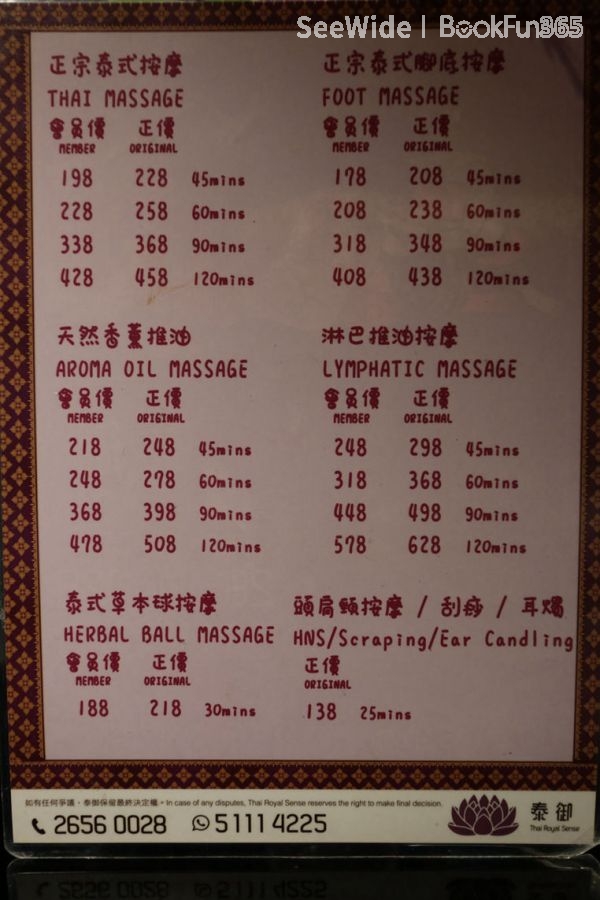 SeeWide | BookFun365
正宗泰式按摩
THAI MASSAGE
會員價 正價
MEMBER ORIGINAL
198 228 45mins
228 258 60mins
338 368 90mins
428 458 120mins
正宗泰式腳底按摩
FOOT MASSAGE
會員價 正價
MEMBER ORIGINAL
178 208 45mins
208 238 60mins
318 348 90mins
408 438 120mins
天然香薰推油
AROMA OIL MASSAGE
會員價 正價
MEMBER ORIGINAL
218 248 45mins
248 278 60mins
368 398 90mins
478 508 120mins
淋巴推油按摩
LYMPHATIC MASSAGE
會員價 正價
MEMBER ORIGINAL
248 298 45mins
318 368 60mins
448 498 90mins
578 628 120mins
泰式草本球按摩
HERBAL BALL MASSAGE
會員價 正價
MEMBER ORIGINAL
188 218 30mins
頭肩頸按摩 / 刮痧 / 耳燭
HNS/Scraping/Ear Candling
正價
ORIGINAL
138 25mins
如有任何爭議，泰御保留最終決定權。In case of any disputes, Thai Royal Sense reserves the right to make final decision.
2656 0028 5111 4225
泰御
Thai Royal Sense